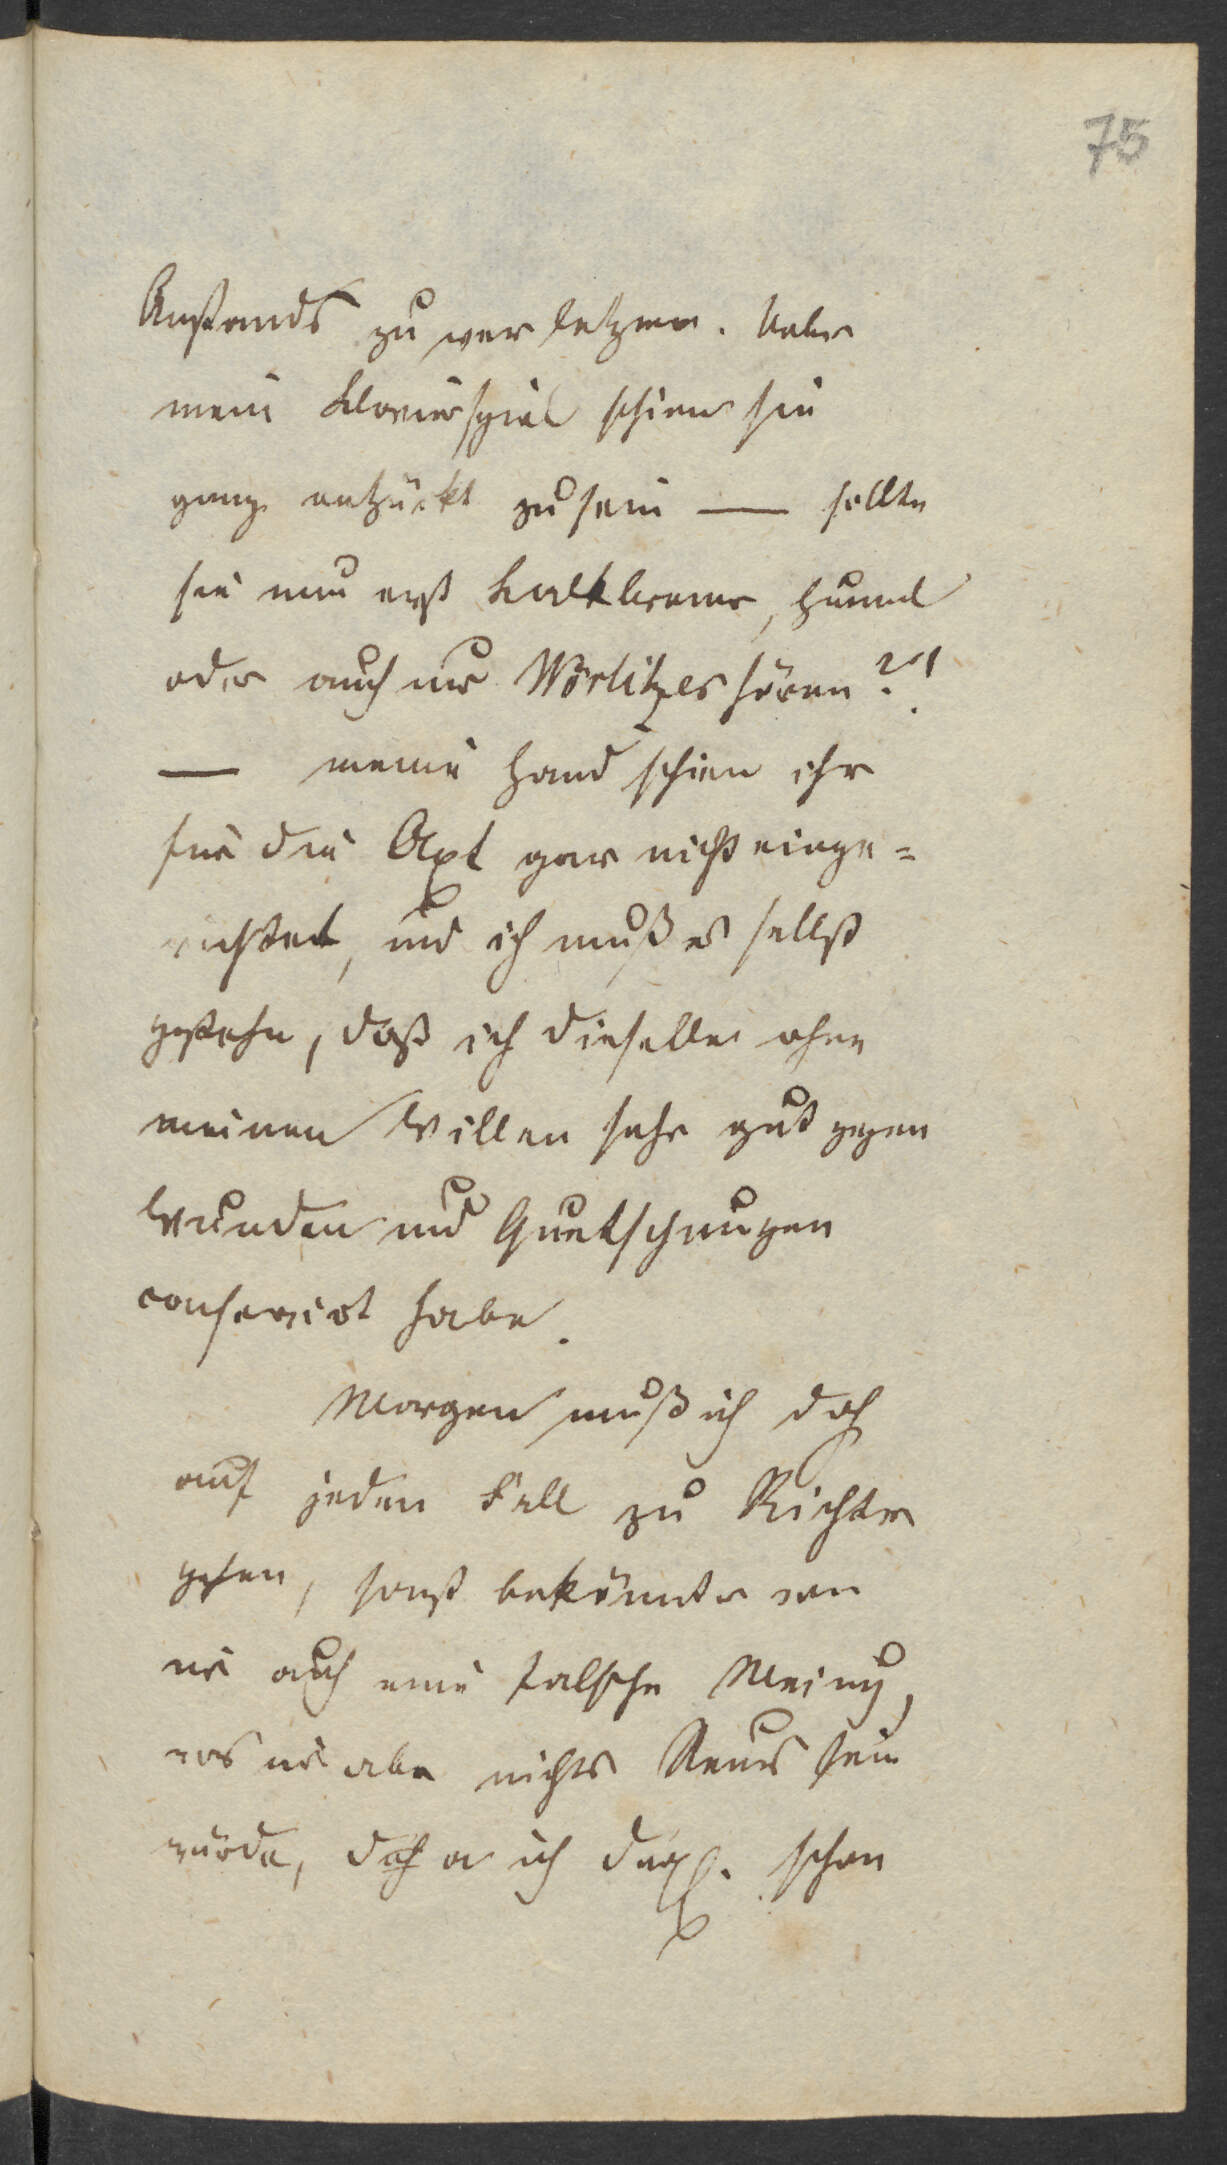 75
Anstands zu verletzen. Ueber
mein Klavierspiel schien sie
ganz entzückt zu sein — sollte
sie nun erst Kalkbrenner, Hummel
oder auch nur Wörlitzer hören?!
— meine Hand schien ihr
für die Axt gar nicht einge=
richtet, und ich muß es selbst
gestehn, daß ich dieselbe ohne
meinen Willen sehr gut gegen
Wunden und Quetschungen
conservirt habe.
Morgen muß ich doch
auf jeden Fall zu Richter
gehen, sonst bekömmt er von
mir auch eine falsche Meinung,
was mir aber nichts Neues sein
würde, doch ich dergl. schon